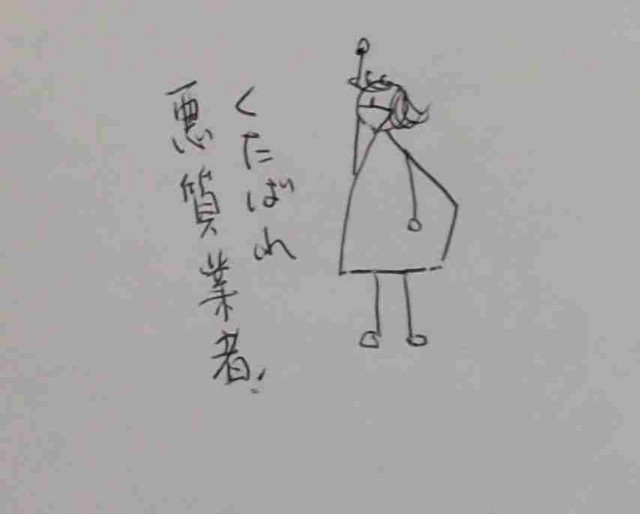 くたばれ
悪質業者!